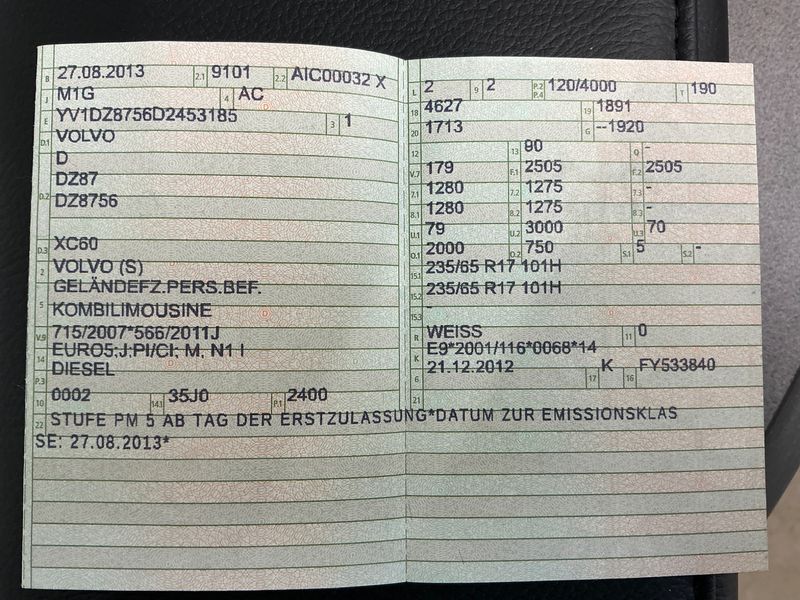 B 27.08.2013 2.1 9101 2.2 AIC00032 X
J M1G 4 AC
E YV1DZ8756D2453185 3 1
D.1 VOLVO
D
D.2 DZ87
DZ8756
D.3 XC60
2 VOLVO (S)
GELÄNDEFZ.PERS.BEF.
5 KOMBILIMOUSINE
V.9 715/2007*566/2011J
14 EURO5:J:PI/CI; M, N1 I
P.3 DIESEL
10 0002 14.1 35J0 P.1 2400
L 2 9 2 P.2 P.4 120/4000 T 190
18 4627 19 1891
20 1713 G --1920
12 13 90 Q -
V.7 179 F.1 2505 F.2 2505
7.1 1280 7.2 1275 7.3 -
8.1 1280 8.2 1275 8.3 -
U.1 79 U.2 3000 U.3 70
O.1 2000 O.2 750 S.1 5 S.2 -
15.1 235/65 R17 101H
15.2 235/65 R17 101H
15.3 -
R WEISS 11 0
K E9*2001/116*0068*14
6 21.12.2012 17 K 16 FY533840
21
22 STUFE PM 5 AB TAG DER ERSTZULASSUNG*DATUM ZUR EMISSIONSKLAS
SE: 27.08.2013*